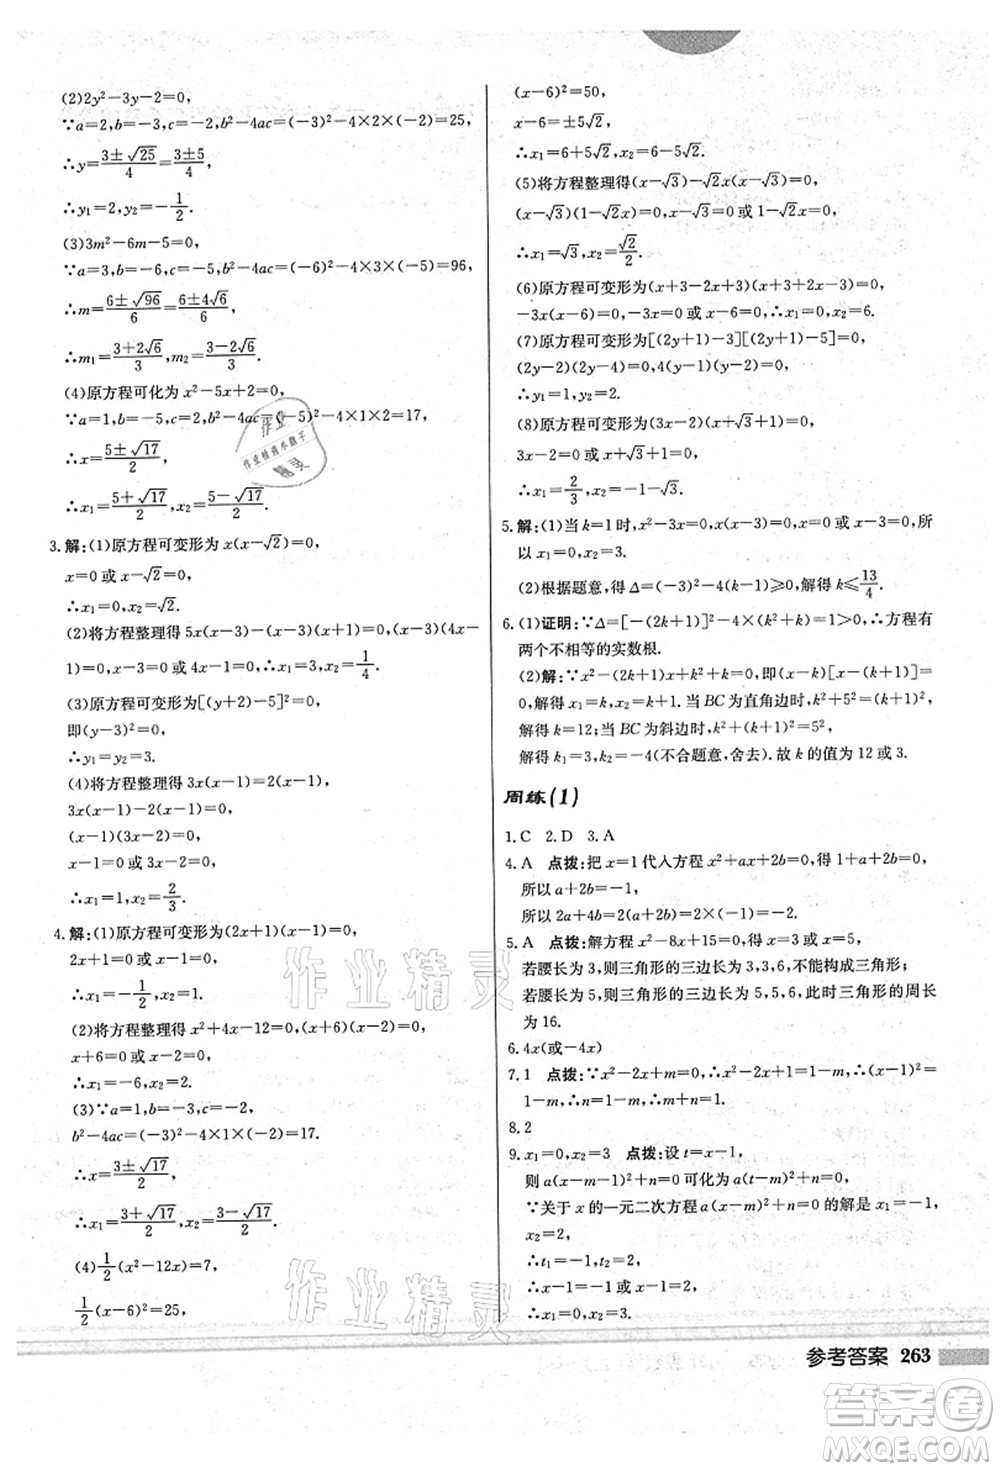 (2)2y²-3y-2=0,
∵a=2,b=-3,c=-2,b²-4ac=(-3)²-4×2×(-2)=25,
∴y=(3±√25)/4=(3±5)/4,
∴y₁=2,y₂=-1/2.
(3)3m²-6m-5=0,
∵a=3,b=-6,c=-5,b²-4ac=(-6)²-4×3×(-5)=96,
∴m=(6±√96)/6=(6±4√6)/6,
∴m₁=(3+2√6)/3,m₂=(3-2√6)/3.
(4)原方程可化为x²-5x+2=0,
∵a=1,b=-5,c=2,b²-4ac=(-5)²-4×1×2=17,
∴x=(5±√17)/2,
∴x₁=(5+√17)/2,x₂=(5-√17)/2.
3.解:(1)原方程可变形为x(x-√2)=0,
x=0或x-√2=0,
∴x₁=0,x₂=√2.
(2)将方程整理得5x(x-3)-(x-3)(x+1)=0,(x-3)(4x-
1)=0,x-3=0或4x-1=0,∴x₁=3,x₂=1/4.
(3)原方程可变形为[(y+2)-5]²=0,
即(y-3)²=0,
∴y₁=y₂=3.
(4)将方程整理得3x(x-1)=2(x-1),
3x(x-1)-2(x-1)=0,
(x-1)(3x-2)=0,
x-1=0或3x-2=0,
∴x₁=1,x₂=2/3.
4.解:(1)原方程可变形为(2x+1)(x-1)=0,
2x+1=0或x-1=0,
∴x₁=-1/2,x₂=1.
(2)将方程整理得x²+4x-12=0,(x+6)(x-2)=0,
x+6=0或x-2=0,
∴x₁=-6,x₂=2.
(3)∵a=1,b=-3,c=-2,
b²-4ac=(-3)²-4×1×(-2)=17.
∴x=(3±√17)/2,
∴x₁=(3+√17)/2,x₂=(3-√17)/2.
(4)1/2(x²-12x)=7,
1/2(x-6)²=25,
(x-6)²=50,
x-6=±5√2,
∴x₁=6+5√2,x₂=6-5√2.
(5)将方程整理得(x-√3)-√2x(x-√3)=0,
(x-√3)(1-√2x)=0,x-√3=0或1-√2x=0,
∴x₁=√3,x₂=√2/2.
(6)原方程可变形为(x+3-2x+3)(x+3+2x-3)=0,
-3x(x-6)=0,x=0或x-6=0,∴x₁=0,x₂=6.
(7)原方程可变形为[(2y+1)-3][(2y+1)-1]=0,
(2y-2)(2y)=0,4y(y-1)=0,y=0或y-1=0,
∴y₁=1,y₂=0.
(8)原方程可变形为(3x-2)(x+√3+1)=0,
3x-2=0或x+√3+1=0,
∴x₁=2/3,x₂=-1-√3.
5.解:(1)当k=1时,x²-3x=0,x(x-3)=0,x=0或x-3=0,所
以x₁=0,x₂=3.
(2)根据题意,得Δ=(-3)²-4(k-1)≥0,解得k≤13/4.
6.(1)证明:∵Δ=[-(2k+1)]²-4(k²+k)=1>0,∴方程有
两个不相等的实数根.
(2)解:∵x²-(2k+1)x+k²+k=0,即(x-k)[x-(k+1)]=
0,解得x₁=k,x₂=k+1.当BC为直角边时,k²+5²=(k+1)²,
解得k=12;当BC为斜边时,k²+(k+1)²=5²,
解得k₁=3,k₂=-4(不合题意,舍去).故k的值为12或3.
周练(1)
1.C 2.D 3.A
4.A 点拨:把x=1代人方程x²+ax+2b=0,得1+a+2b=0,
所以a+2b=-1,
所以2a+4b=2(a+2b)=2×(-1)=-2.
5.A 点拨:解方程x²-8x+15=0,得x=3或x=5,
若腰长为3,则三角形的三边长为3,3,6,不能构成三角形;
若腰长为5,则三角形的三边长为5,5,6,此时三角形的周长
为16.
6.4x(或-4x)
7.1 点拨:∵x²-2x+n=0,∴x²-2x=-n,∴x²-2x+1=
1-n,∴(x-1)²=1-n,∴m=1-n,∴m+n=1.
8.2
9.x₁=0,x₂=3 点拨:设t=x-1,
则a(x-m-1)²+n=0可化为a(t-m)²+n=0,
∵关于x的一元二次方程a(x-m)²+n=0的解是x₁=-1,
x₂=2,
∴t₁=-1,t₂=2,
∴x-1=-1或x-1=2,
∴x₁=0,x₂=3.
参考答案 263
作业
作业检查小助手
精灵
作业精灵
作业精灵
答案圈
MXQE.COM